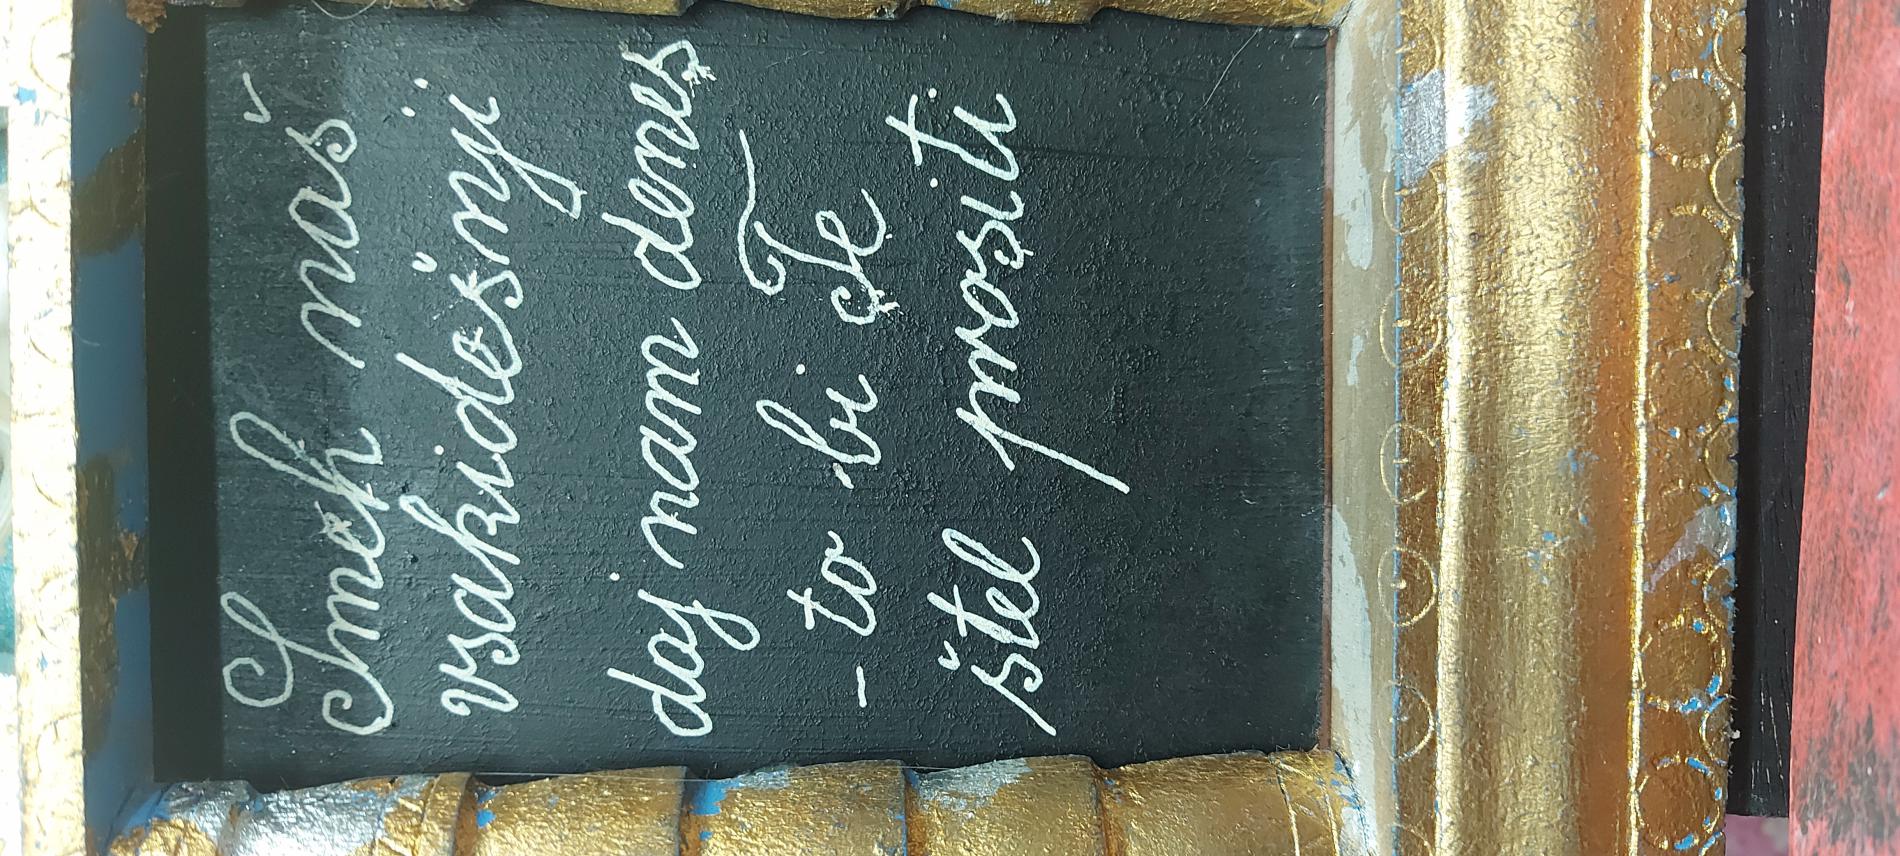 Smeh naš
vsakidešnji
daj nam denes
- to bi Te
štel prositi